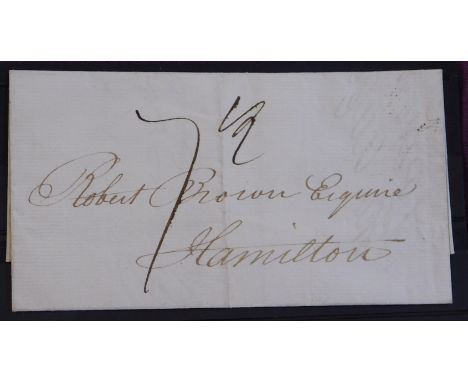 7 ½
Robert Brown Esquire
Hamilton